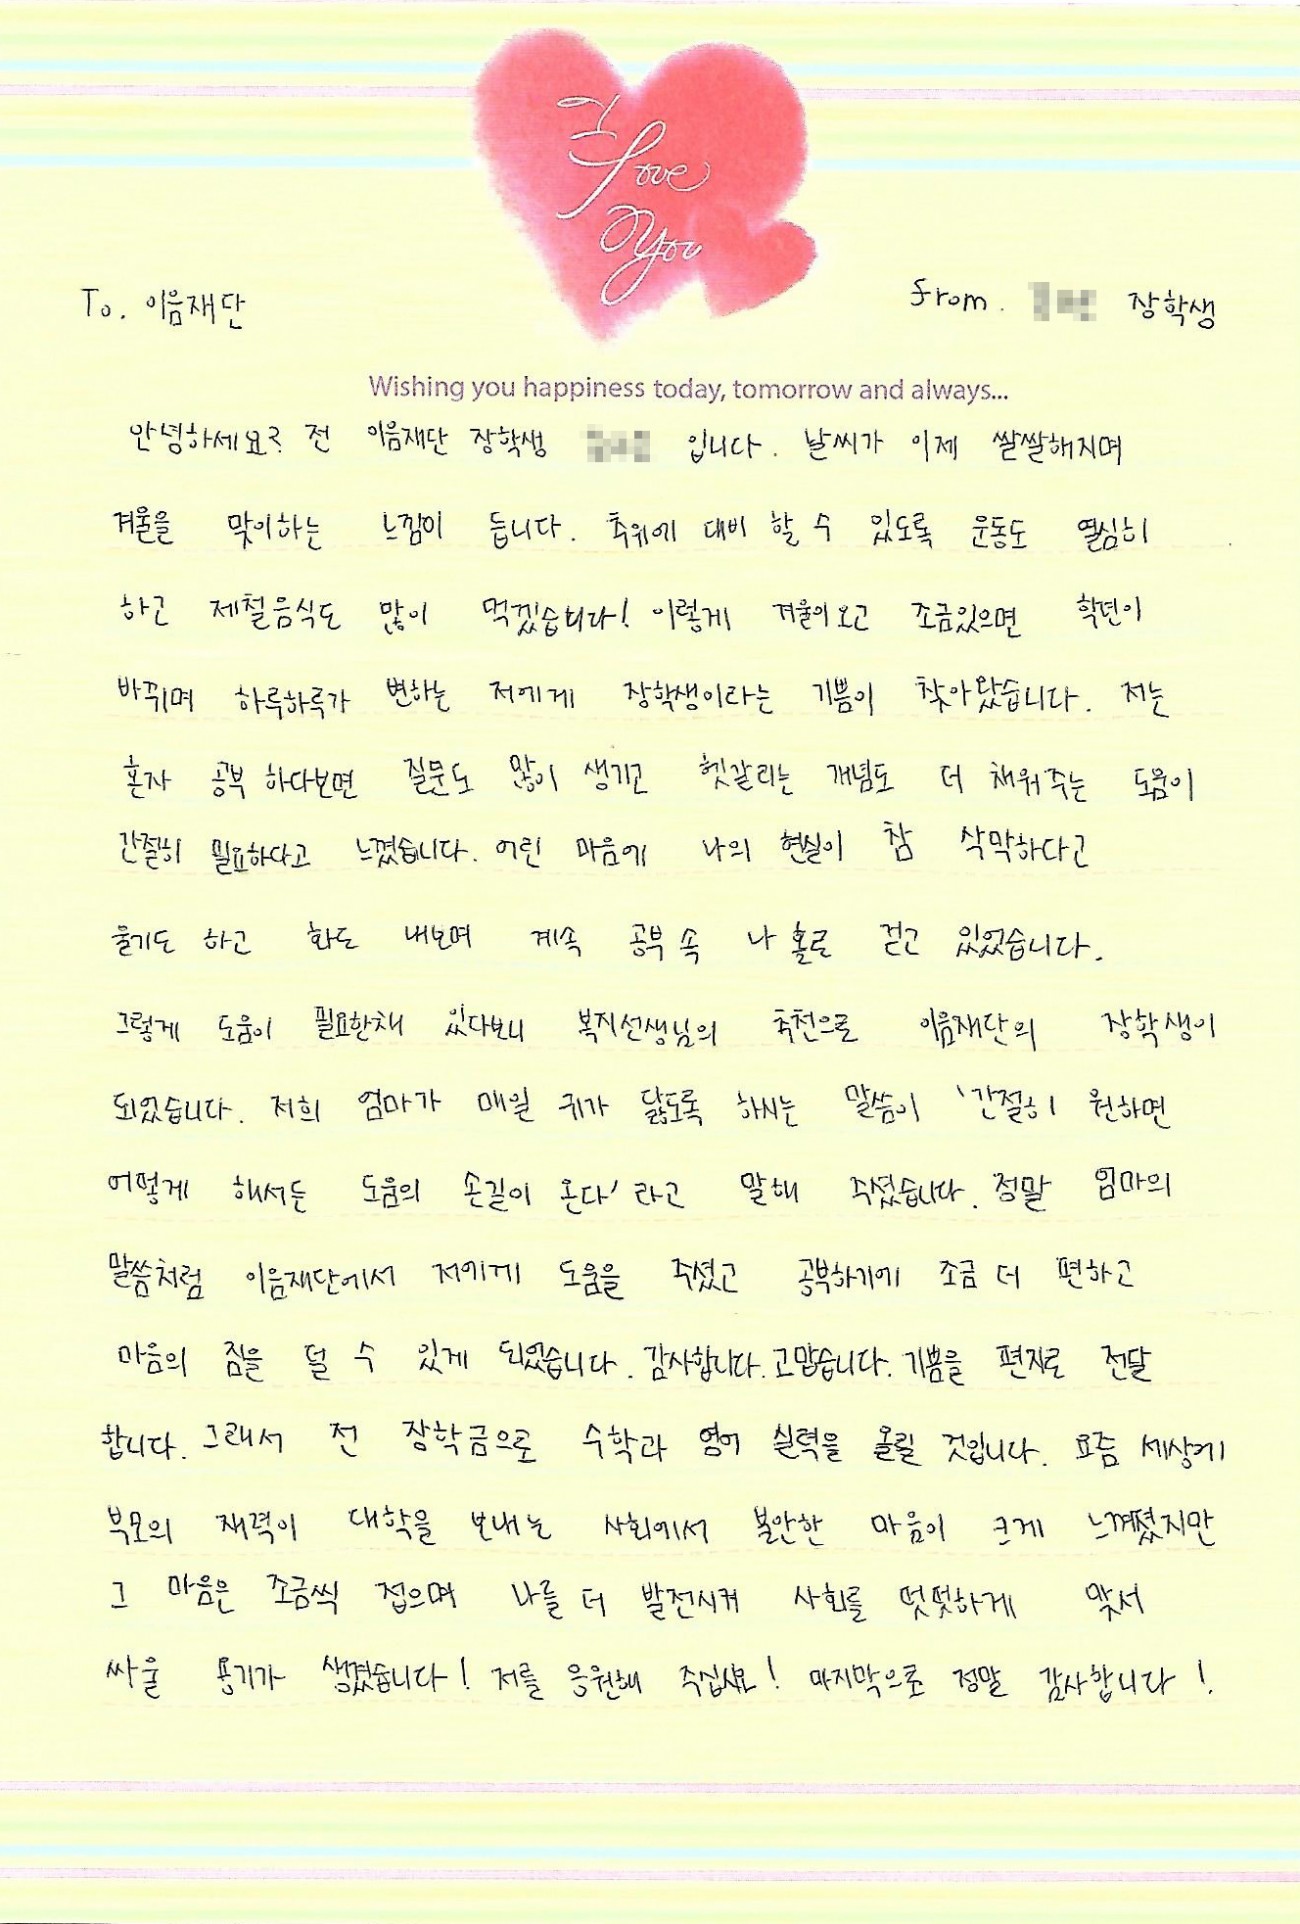 I
Love
You
To. 이음재단
from. 장학생
Wishing you happiness today, tomorrow and always...
안녕하세요? 전 이음재단 장학생 입니다. 날씨가 이제 쌀쌀해지며
겨울을 맞이하는 느낌이 듭니다. 추위에 대비 할 수 있도록 운동도 열심히
하고 제철음식도 많이 먹겠습니다! 이렇게 겨울이 오고 조금있으면 학년이
바뀌며 하루하루가 변하는 저에게 장학생이라는 기쁨이 찾아왔습니다. 저는
혼자 공부 하다보면 질문도 많이 생기고 헷갈리는 개념도 더 채워주는 도움이
간절히 필요하다고 느꼈습니다. 어린 마음에 나의 현실이 참 삭막하다고
울기도 하고 화도 내보며 계속 공부 속 나 홀로 걷고 있었습니다.
그렇게 도움이 필요한채 있다보니 복지선생님의 추천으로 이음재단의 장학생이
되었습니다. 저희 엄마가 매일 귀가 닳도록 하시는 말씀이 '간절히 원하면
어떻게 해서든 도움의 손길이 온다'라고 말해 주셨습니다. 정말 엄마의
말씀처럼 이음재단에서 저에게 도움을 주셨고 공부하기에 조금 더 편하고
마음의 짐을 덜 수 있게 되었습니다. 감사합니다. 고맙습니다. 기쁨을 편지로 전달
합니다. 그래서 전 장학금으로 수학과 영어 실력을 올릴 것입니다. 요즘 세상에
부모의 재력이 대학을 보내는 사회에서 불안한 마음이 크게 느껴졌지만
그 마음은 조금씩 접으며 나를 더 발전시켜 사회를 떳떳하게 맞서
싸울 용기가 생겼습니다! 저를 응원해 주십시오! 마지막으로 정말 감사합니다!